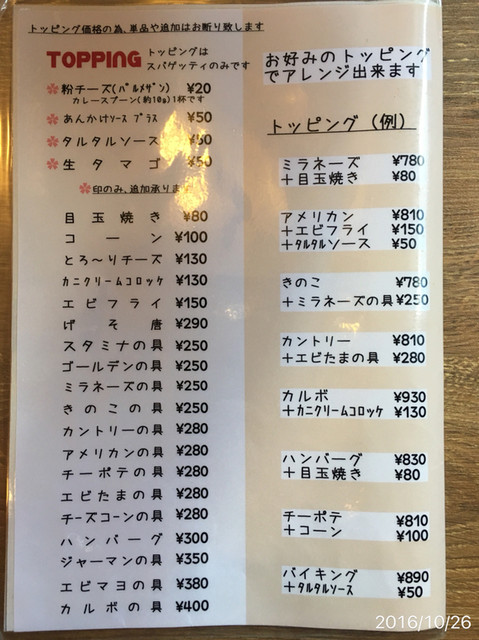 トッピング価格の為、単品や追加はお断り致します
TOPPING トッピングは
スパゲッティのみです
粉チーズ(パルメザン) ¥20
カレースプーン(約10g)1杯です
あんかけソース プラス ¥50
タルタルソース ¥50
生タマゴ ¥50
印のみ、追加承ります
目玉焼き ¥80
コーン ¥100
とろ～りチーズ ¥130
カニクリームコロッケ ¥130
エビフライ ¥150
げそ唐 ¥290
スタミナの具 ¥250
ゴールデンの具 ¥250
ミラネーズの具 ¥250
きのこの具 ¥250
カントリーの具 ¥280
アメリカンの具 ¥280
チーポテの具 ¥280
エビたまの具 ¥280
チーズコーンの具 ¥280
ハンバーグ ¥300
ジャーマンの具 ¥350
エビマヨの具 ¥380
カルボの具 ¥400
お好みのトッピング
でアレンジ出来ます
トッピング（例）
ミラネーズ ¥780
＋目玉焼き ¥80
アメリカン ¥810
＋エビフライ ¥150
＋タルタルソース ¥50
きのこ ¥780
＋ミラネーズの具 ¥250
カントリー ¥810
＋エビたまの具 ¥280
カルボ ¥930
＋カニクリームコロッケ ¥130
ハンバーグ ¥830
＋目玉焼き ¥80
チーポテ ¥810
＋コーン ¥100
バイキング ¥890
＋タルタルソース ¥50
2016/10/26